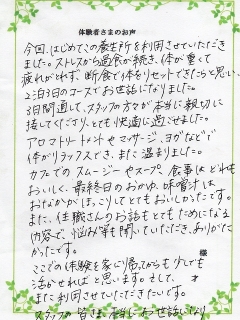 体験者さまのお声
今回、はじめてこの養生所を利用させていただき
ました。ストレスから過食が続き、体が重くて
疲れがとれず、断食で体をリセットできたらと思い、
2泊3日のコースでお世話になりました。
3日間通して、スタッフの方々が本当に親切に
接してくださり、とても快適に過ごせました。
アロマトリートメントやマッサージ、ヨガなどで
体がリラックスでき、また温まりました。
カフェでのスムージーやスープ、食事はどれも
おいしく、最終日のおかゆ、味噌汁は
おなかがほっこりしてとてもおいしかったです。
また、住職さんのお話もとてもためになる
内容で、悩み等も聞いていただき、ありがた
かったです。
様
ここでの体験を家に帰ってからも少しでも
活かせればと思います。そして、
才
また利用させていただきたいです。
スタッフの皆さま、本当にお世話になり